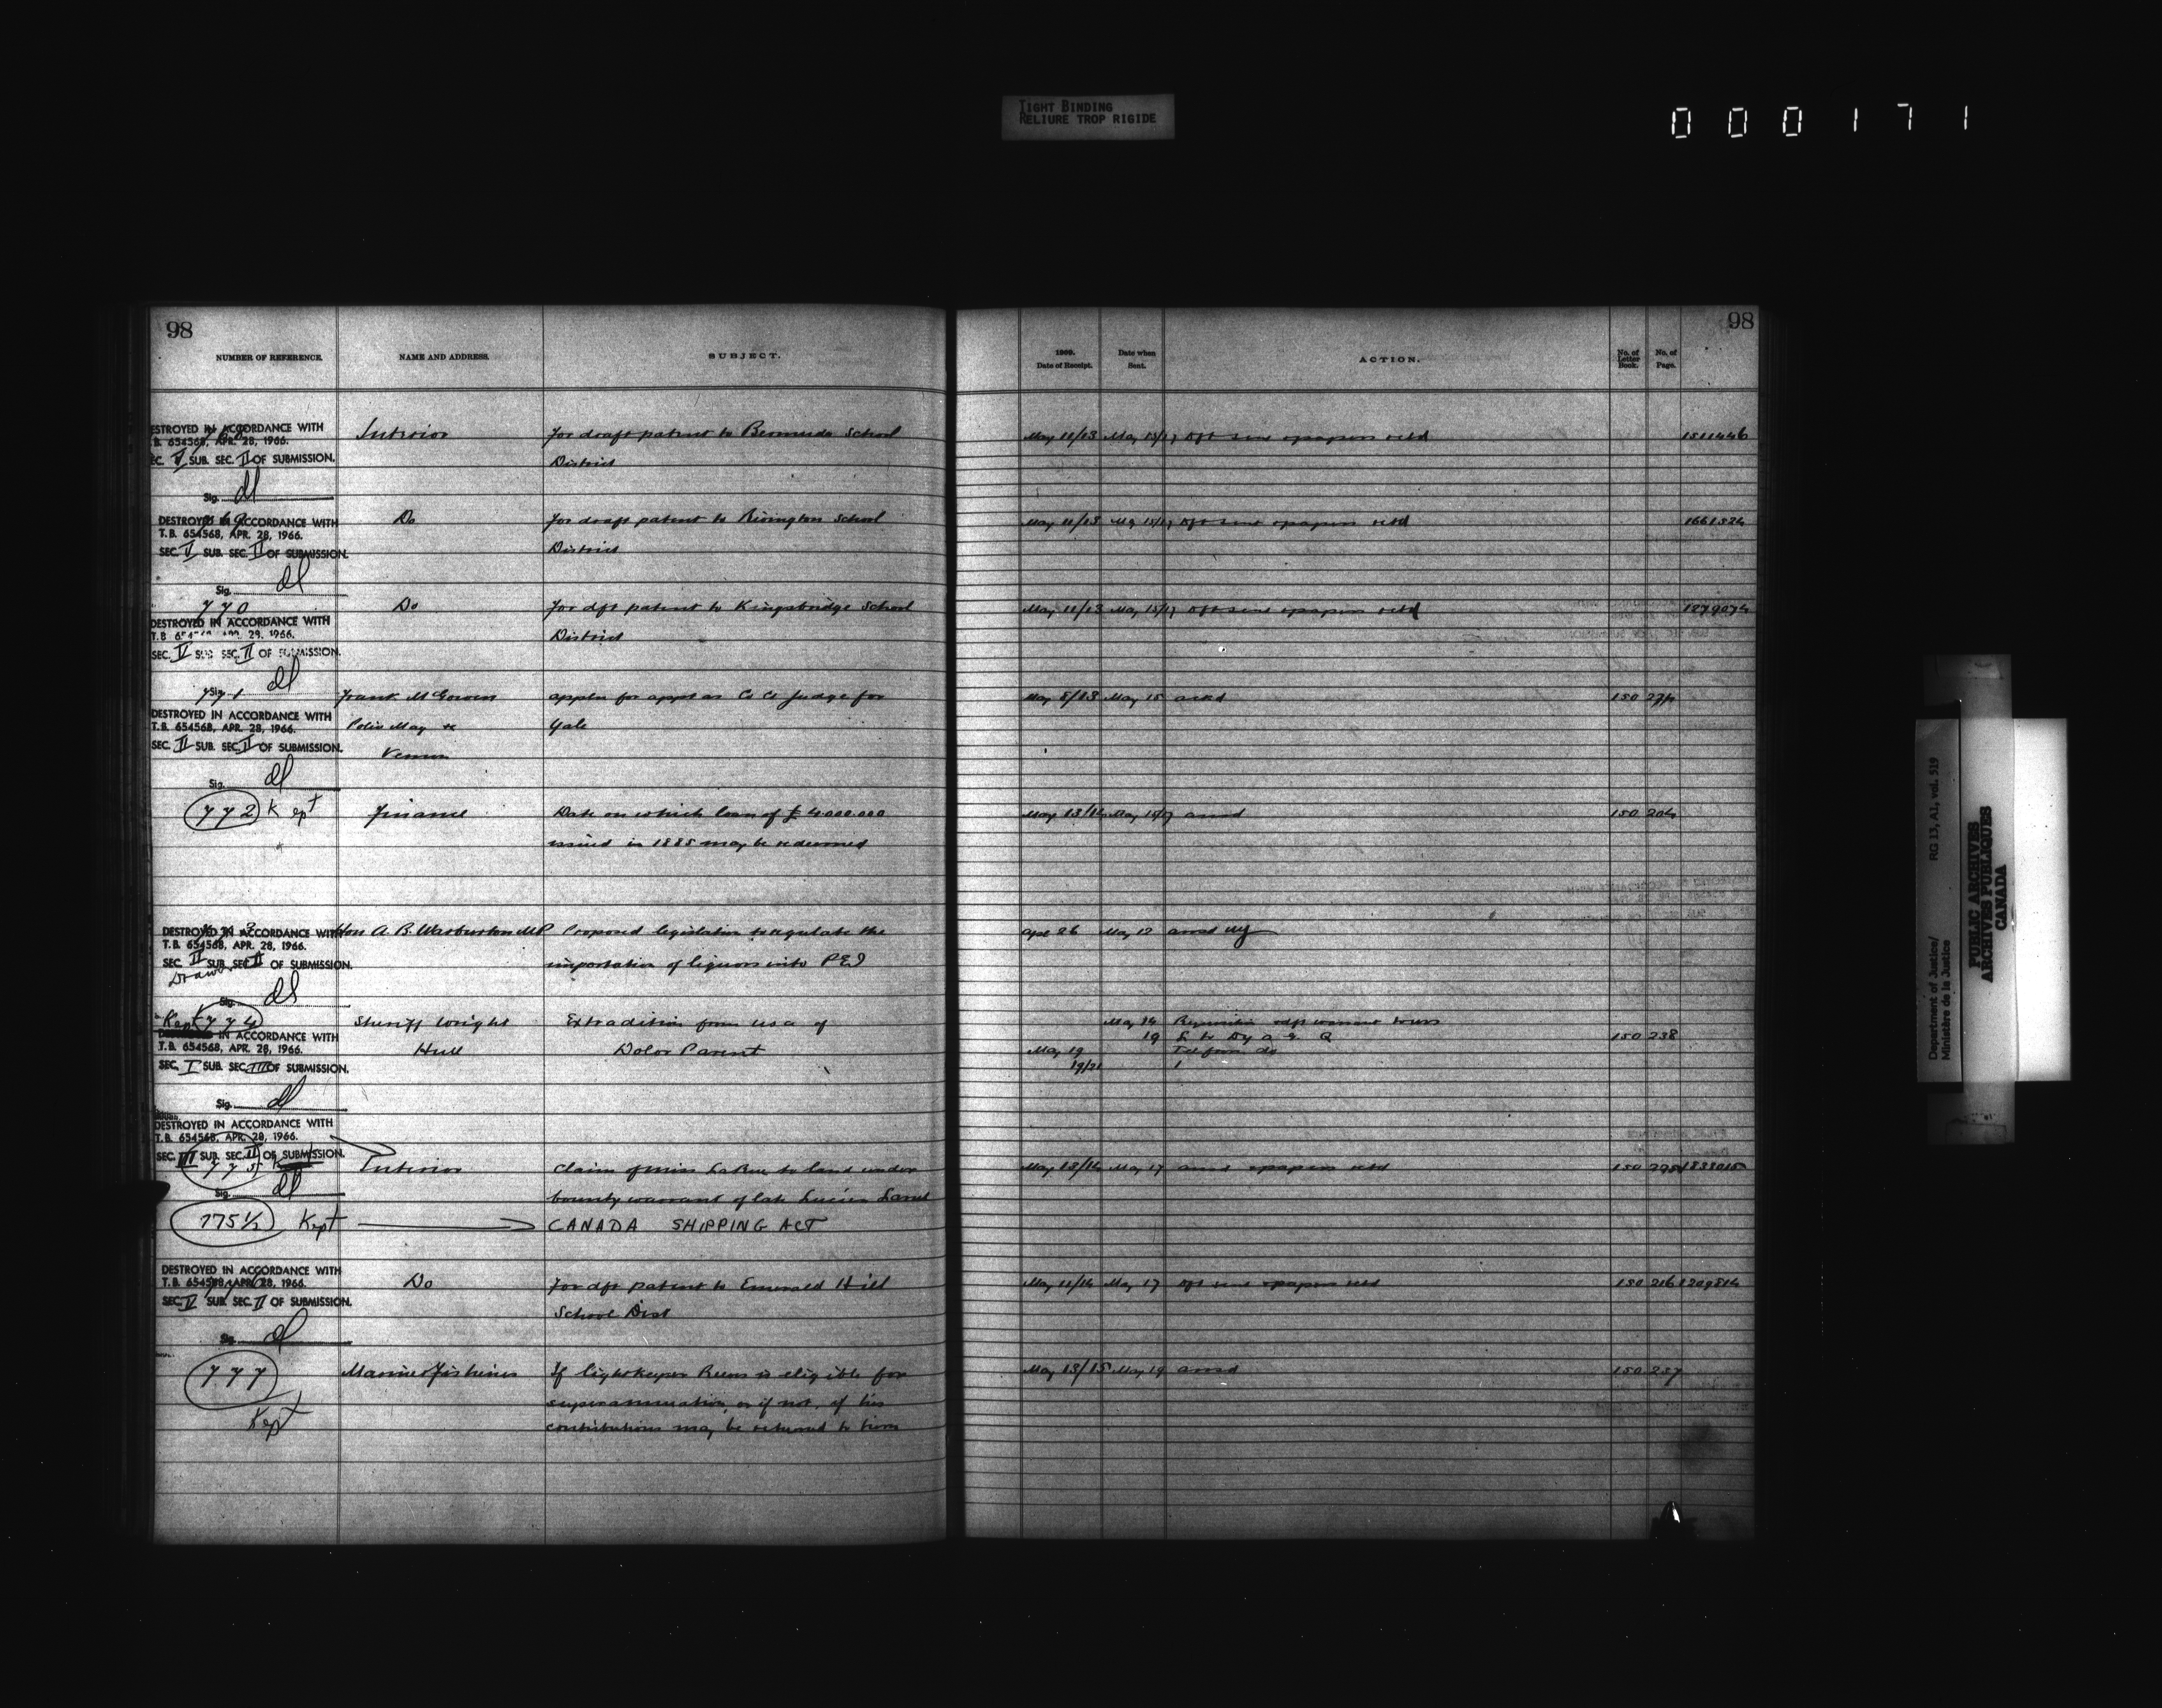 TIGHT BINDING
RELIURE TROP RIGIDE
000171
98
NUMBER OF REFERENCE. NAME AND ADDRESS. SUBJECT.
DESTROYED IN ACCORDANCE WITH
T.B. 654568, APR. 28, 1966.
SEC. V SUB. SEC. II OF SUBMISSION.
Sig. dl
Interior For draft patent to Bermuda School
District
769
DESTROYED IN ACCORDANCE WITH
T.B. 654568, APR. 28, 1966.
SEC. V SUB. SEC. II OF SUBMISSION.
Sig. dl
Do For draft patent to Rivington School
District
770
DESTROYED IN ACCORDANCE WITH
T.B. APR. 29, 1966.
SEC. V SUB SEC. II OF SUBMISSION.
Sig. dl
Do For dft patent to Kingsbridge School
District
771
DESTROYED IN ACCORDANCE WITH
T.B. 654568, APR. 28, 1966.
SEC. II SUB. SEC. II OF SUBMISSION.
Sig. dl
Frank McGowen appln for appt as Co Ct Judge for
Police Mag Yale
Vernon
772 Kept Finance Date on which loan of £ 4.000.000
issued in 1885 may be redeemed
773
DESTROYED IN ACCORDANCE WITH
T.B. 654568, APR. 28, 1966.
SEC. II SUB. SEC. II OF SUBMISSION.
Sig. dl
Hon A. B. Warburton MP Proposed legislation to regulate the
importation of liquors into PEI
Kept 774 Sheriff Wright Extradition from USA of
IN ACCORDANCE WITH
T.B. 654568, APR. 28, 1966.
SEC. I SUB. SEC. III OF SUBMISSION.
Sig. dl
Hull Dolor Parent
DESTROYED IN ACCORDANCE WITH
T.B. 654568, APR. 28, 1966.
SEC. III SUB. SEC. II OF SUBMISSION.
Sig. dl
775 Interior Claim of Miss LaRue to land under
bounty warrant of late Lucien
775 1/2 Kept CANADA SHIPPING ACT
DESTROYED IN ACCORDANCE WITH
T.B. 654568, APR. 28, 1966.
SEC. V SUB. SEC. II OF SUBMISSION.
Sig. dl
Do For dft patent to Emerald Hill
School Dist
777 Marine & Fisheries If lightkeeper is eligible for
superannuation, or if not, if his
Kept contributions may be returned to him
98
1909. Date of Receipt. Date when Sent. ACTION. No. of Letter Book. No. of Page.
May 11/13 May 15/17 dft sent & papers retd 1511446
May 11/13 May 15/17 dft sent & papers retd 1661324
May 11/13 May 15/17 dft sent & papers retd 1279074
May 8/13 May 15 ackd 150
May 13/14 May 15/17 ansd 150 204
Apl 26 May 12 ansd
May 14 Requisition warrant
19 L to Dy A G Q 150 238
May 19 Tel from do
19/21
May 13/14 May 17 ansd & papers retd 150
May 11/14 May 17 dft sent & papers retd 150 216 1209814
May 13/15 May 19 ansd 150 237
Department of Justice/
Ministère de la Justice
RG 13, A1, vol. 519
PUBLIC ARCHIVES
ARCHIVES PUBLIQUES
CANADA